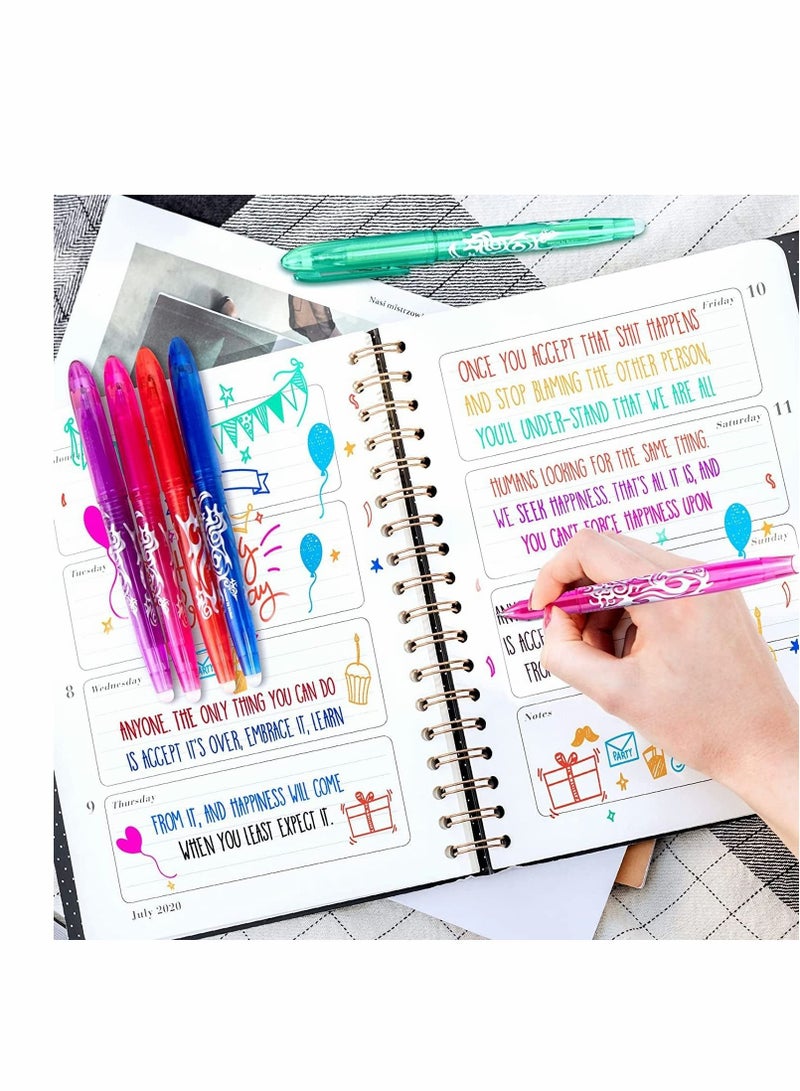 Nasi mistrzow
Tuesday
8 Wednesday
ANYONE. THE ONLY THING YOU CAN DO
IS ACCEPT IT'S OVER, EMBRACE IT, LEARN
PARTY
9 Thursday
FROM IT, AND HAPPINESS WILL COME
WHEN YOU LEAST EXPECT IT.
July 2020
Friday 10
ONCE YOU ACCEPT THAT SHIT HAPPENS
AND STOP BLAMING THE OTHER PERSON,
YOU'LL UNDER-STAND THAT WE ARE ALL
Saturday 11
HUMANS LOOKING FOR THE SAME THING.
WE SEEK HAPPINESS. THAT'S ALL IT IS, AND
YOU CAN'T FORCE HAPPINESS UPON
Sunday
IS ACCE
Notes
PARTY